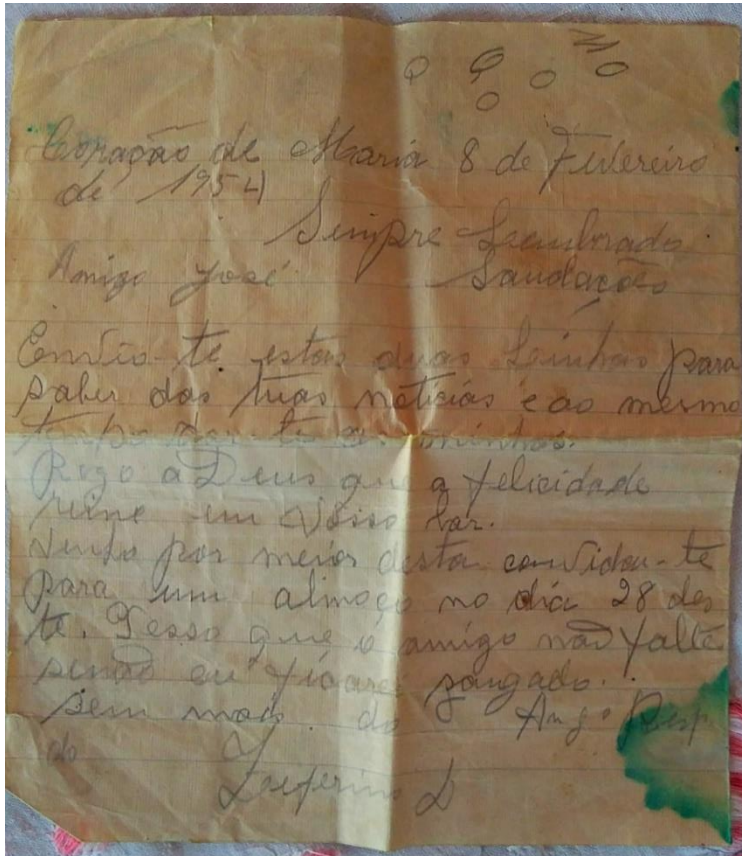 Coração de Maria 8 de Fevereiro
de 1954
Sempre Lembrado
Amigo José Saudações
Envio-te estas duas Linhas para
saber das tuas notícias e ao mesmo
tempo dar-te as minhas.
Rogo a Deus que a felicidade
reine em Vosso Lar.
Venho por meios desta convidar-te
para um almoço no dia 28 des
te. Pesso que o amigo não falte
sinão eu ficarei zangado.
Sem mais do Amgº
do